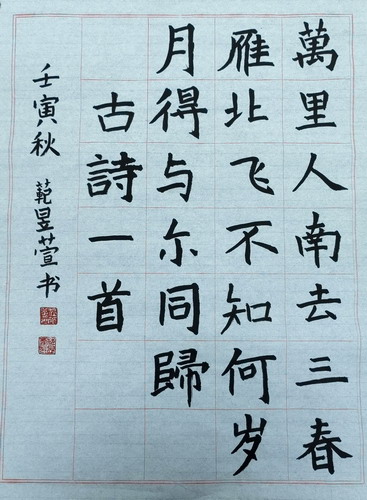 萬里人南去三春
雁北飞不知何岁
月得与尔同歸
古詩一首
壬寅秋 範昱萱书